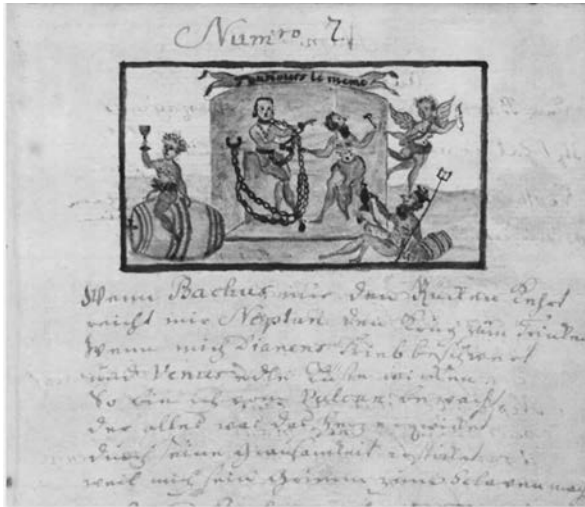 Numro. 7.
Toujours le meme
Wenn Bachus mir den Rucken kehrt
reicht mir Neptun den Krug zum trinken
Wenn mich Dianens Trieb beschwert
und Venus edle Küße winken
So bin ich vom Vulcan bewacht
der alles was das Herz erquicket
durch seine Grausamkeit ersticket
weil mich sein Grimm zum Sclaven macht